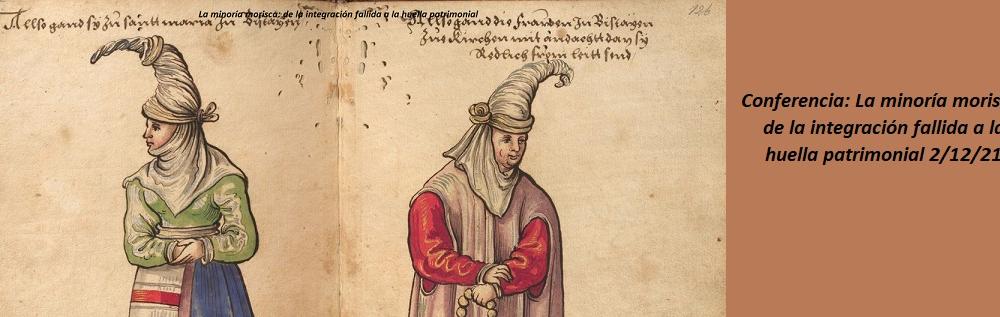 La minoría morisca: de la integración fallida a la huella patrimonial
Allso gand sÿ Zu santt maria In Biscayen
Allso gand die frawen In Biscayen
Zue Kirchen mit andacht dan sÿ
Redlich from leitt send
Conferencia: La minoría moris
de la integración fallida a la
huella patrimonial 2/12/21